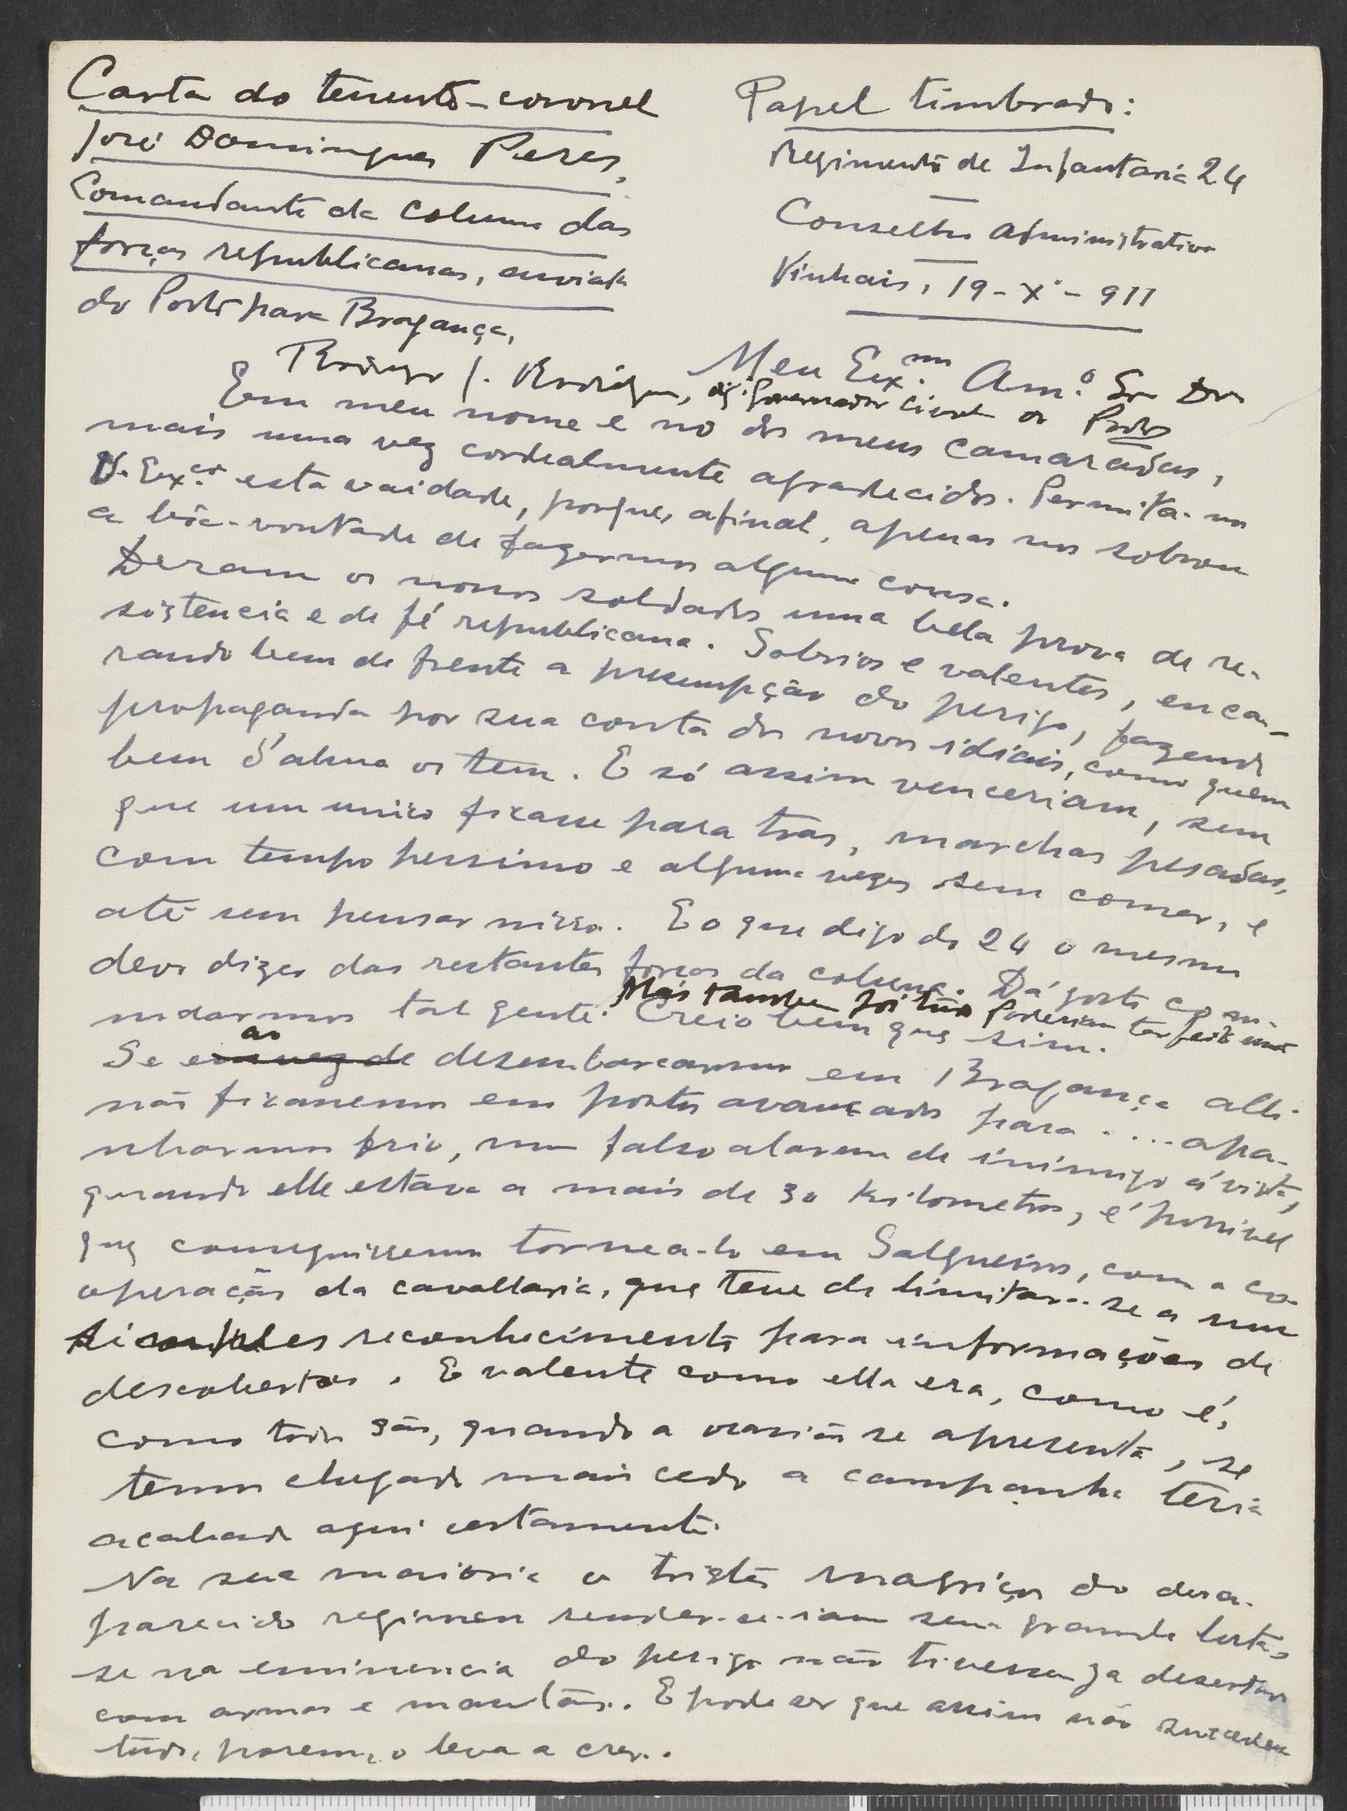 Carta do tenente-coronel
José Domingues Peres,
Comandante da coluna das
forças republicanas, enviada
do Porto para Bragança,
Papel timbrado:
Regimento de Infantaria 24
Conselho Administrativo
Vinhais, 19-X-911
Meu Exmo. Amo. Sr. Dr.
Rodrigo J. Rodrigues, dig. Governador civil do Porto
Em meu nome e no dos meus camaradas,
mais uma vez cordealmente agradecidos. Permita-nos
V. Exca. esta vaidade, porque, afinal, apenas nos sobrou
a bôa-vontade de fazermos alguma cousa.
Deram os nossos soldados uma bela prova de re-
sistencia e de fé republicana. Sobrios e valentes, enca-
rando bem de frente a presumpção do perigo, fazendo
propaganda por sua conta dos novos idiais, como quem
bem d'alma os tem. E só assim venceriam, sem
que um unico ficasse para tras, marchas pesadas,
com tempo pessimo e algumas vezes sem comer, e
até sem pensar nisso. E o que digo do 24 o mesmo
devo dizer das restantes forças da coluna. Dá gosto coman-
darmos tal gente. Mas tambem foi tudo. Poderiam ter feito mais
Creio bem que sim.
Se em vez de ao desembarcarmos em Bragança alli
não ficassemos em postos avançados para .... apa-
nharmos frio, num falso alarme de inimigo á vista,
quando elle estava a mais de 30 kilometros, é possivel
que conseguissemos tornea-lo em Salgueiros, com a co-
operação da cavallaria, que teve de limitar-se a um
simples reconhecimento para informações de
descobertas. E valente como ella era, como é,
como todos são, quando a ocasião se apresenta, se
temos chegado mais cedo a campanha teria
acabado aqui certamente.
Na sua maioria os tristes magriços do desa-
parecido regimen render-se-iam sem grande luta,
se na eminencia do perigo não tivessem ja desertado
com armas e mantas. E pode ser que assim não sucedesse
tudo, porem, o leva a crer.